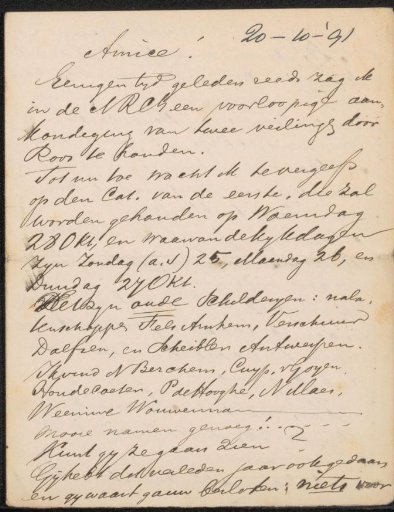 20-10-'91
Amice!
Eenigen tijd geleden reeds zag ik
in de NRCt een voorloopige aan
kondiging van twee veilings door
Roos te houden.
Tot nu toe wacht ik te vergeefs
op den Cat. van de eerste, die zal
worden gehouden op Woensdag
28 Okt, en waarvan de kijkdagen
zijn Zondag (a.s) 25, Maandag 26, en
Dinsdag 27 Okt.
Het zijn oude schilderijen: nala
tenschappen Fels Arnhem, Verschuur
Dalfsen, en Antwerpen.
Ik vind N Berchem, Cuyp, v Goyen,
Hondecoeter, P de Hooghe, N Maes,
Weenix Wouwerman
mooie namen genoeg!
Kunt gij ze gaan zien
Gij hebt dit verleden jaar ook gedaan
en gij waart gauw : niets voor